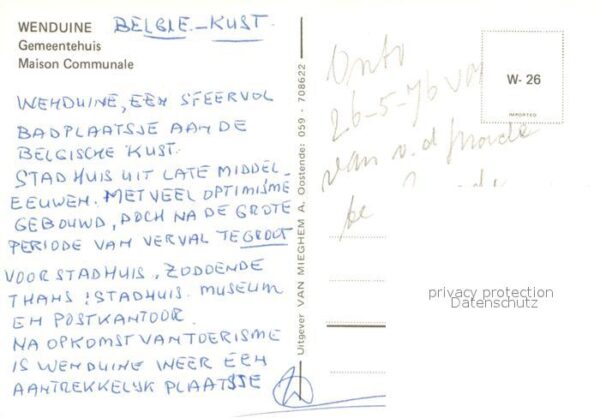 WENDUINE BELGIE - KUST.
Gemeentehuis
Maison Communale
WENDUINE, EEN SFEERVOL
BADPLAATSJE AAN DE
BELGISCHE KUST.
STADHUIS UIT LATE MIDDEL-
EEUWEN. MET VEEL OPTIMISME
GEBOUWD, DOCH NA DE GROTE
PERIODE VAN VERVAL TE GROOT
VOOR STADHUIS, ZODOENDE
THANS: STADHUIS. MUSEUM
EN POSTKANTOOR.
NA OPKOMST VAN TOERISME
IS WENDUINE WEER EEN
AANTREKKELIJK PLAATSJE
Uitgever VAN MIEGHEM A. Oostende: 059 - 708622
26-5-76 van
van v.d.
W- 26
IMPORTED
privacy protection
Datenschutz